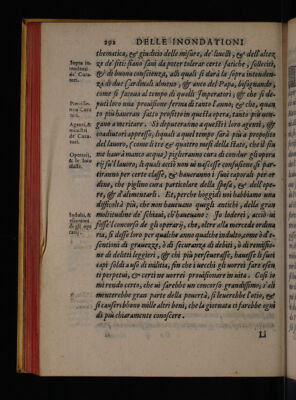 292 DELLE INONDATIONI
thematica, & giudicio delle misure, de' liuelli, & dell'altez
ze de' siti: siano sani da poter tolerar certe fatiche, solleciti,
& di buona conscienza, alli quali si darà la sopra intenden-
za di due Cardinali almeno, & anco del Papa, bisognando;
come si faceua al tempo di quelli Imperatori; & che si de-
puti loro una prouisione ferma di tanto l'anno; & che, quan
to più haueran fatto profitto in quella opera, tanto più uen-
gano a meritare. Si deputeranno a questi i loro agenti, &
coadiutori appresso, liquali a quel tempo sarà più a proposito
del lauoro, (come l'itre et quattro mesi della state, che il fiu
me haurà manco acqua) piglieranno cura di condur gli opera
rij su'l lauoro; & quali acciò non ui nascesse confusione, si par-
tiranno per certe classe, & haueranno i suoi caporali per or
dine, che piglino cura particolare della spesa, & dell'ope-
re, & d'alimentarli. Et, perche hoggidì noi habbiamo una
difficoltà più, che non haueuano quegli antichi, della gran
moltitudine de' schiaui, ch'haueuano: Io loderei, acciò ui
fosse'l concorso de gli operarij, che, oltre alla mercede ordina
ria, si desse loro per qualche anno qualche indulto, come ò d'e-
sentioni di grauezze, ò di securanza di debiti, ò di remissio-
ne di delitti leggieri, & chi più perseuerasse, hauesse li suoi
capi soldi a uso di militia, fin che i uecchi gli uorrei fare esen
ti perpetui, & certi ne uorrei prouisionare in uita. Così io
mi rendo certo, che ui sarebbe un concorso grandissimo; s'ali
menterebbe gran parte della pouertà, si leuerebbe l'otio, &
si causerebbono mille altri beni, che la giornata ci farebbe ogni
dì più chiaramente conoscere.
Sopra in-
tendenti
de' Cura-
tori.
Agenti, &
Operarij,
Indulti, &
Li